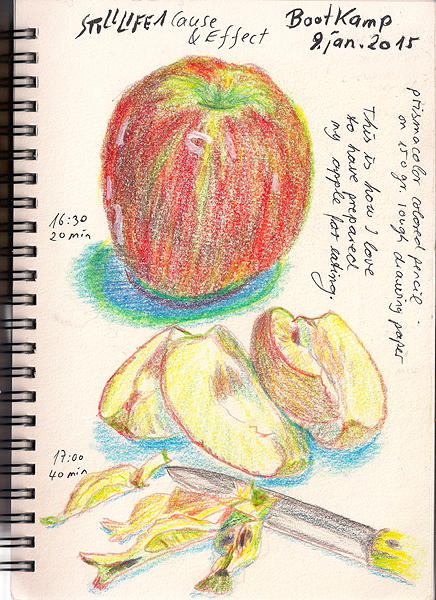 STILLLIFE1 Cause
& Effect
BootKamp
9.jan.2015
prismacolor colored pencil.
on 150 gr. rough drawing paper
This is how I love
to have prepared
my apple for eating.
16:30
20 min
17:00
40 min